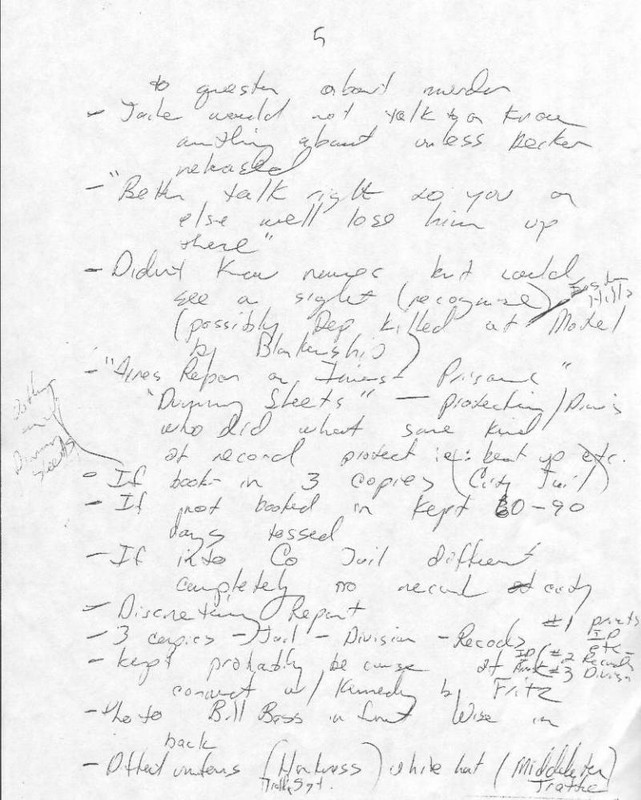 5
to question about murder
- would not talk to or know
anything about unless Decker
released
- "Better talk right to you or
else we'll lose him up
there"
- Didn't know names but would
see a sight (recognize)
(possibly Dep killed at Motel
by Blankenship)
- "Arres Repor on Prisone"
"Dummy Sheets" - protecting/Divis
who did what same kind
of record protect ie: beat up etc.
- If book in 3 copies (City Jail)
- If not booked in kept 60-90
days tossed
- If into Co Jail different
completely no record city
- Report
- 3 copies - Jail - Division - Records
#1 prints
ID
etc -
#2 Records
#3 Division
- kept probably because of
connect w/ Kennedy by Fritz
- Photo Bill Bass in front Wise in
back
- Different (Harkness) white hat (
Traffic Sgt.
Traffic
nothing
until
Dummy
sheets